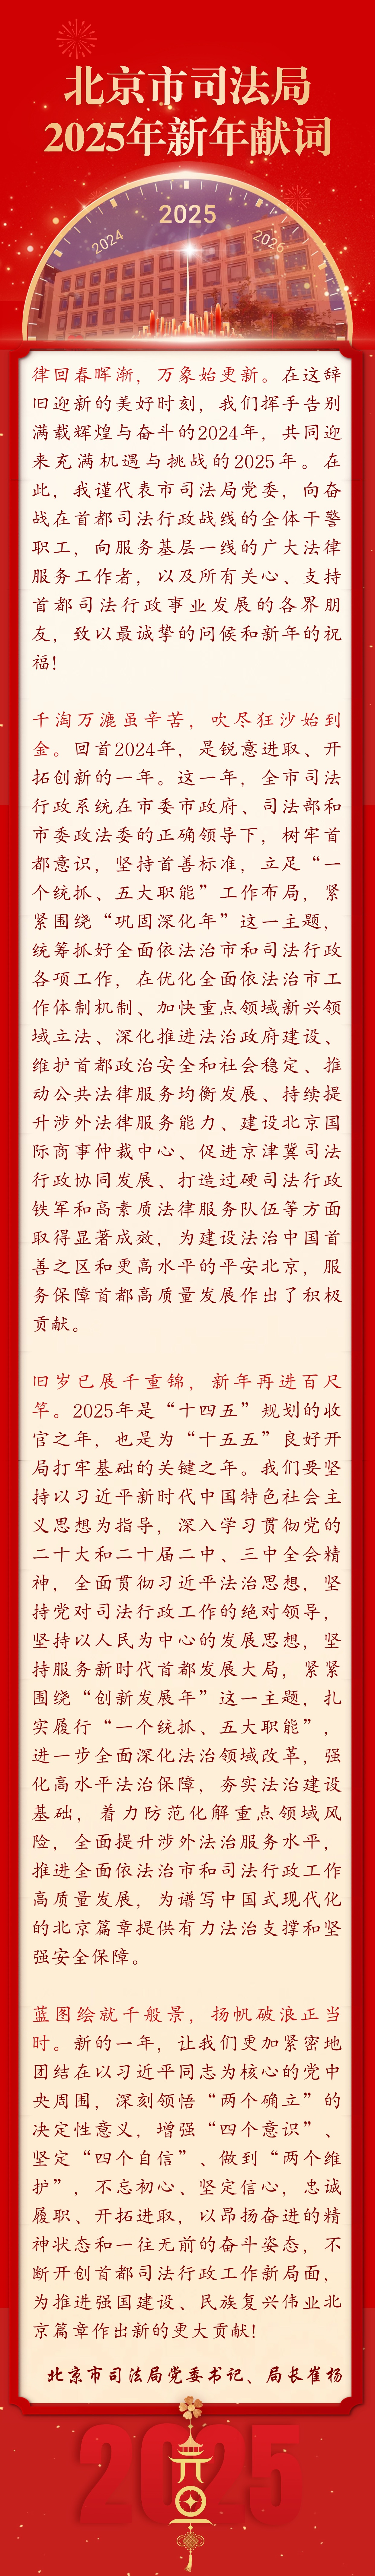 北京市司法局
2025年新年献词
2025
2024
2026
律回春晖渐，万象始更新。在这辞
旧迎新的美好时刻，我们挥手告别
满载辉煌与奋斗的2024年，共同迎
来充满机遇与挑战的2025年。在
此，我谨代表市司法局党委，向奋
战在首都司法行政战线的全体干警
职工，向服务基层一线的广大法律
服务工作者，以及所有关心、支持
首都司法行政事业发展的各界朋
友，致以最诚挚的问候和新年的祝
福！
千淘万漉虽辛苦，吹尽狂沙始到
金。回首2024年，是锐意进取、开
拓创新的一年。这一年，全市司法
行政系统在市委市政府、司法部和
市委政法委的正确领导下，树牢首
都意识，坚持首善标准，立足“一
个统抓、五大职能”工作布局，紧
紧围绕“巩固深化年”这一主题，
统筹抓好全面依法治市和司法行政
各项工作，在优化全面依法治市工
作体制机制、加快重点领域新兴领
域立法、深化推进法治政府建设、
维护首都政治安全和社会稳定、推
动公共法律服务均衡发展、持续提
升涉外法律服务能力、建设北京国
际商事仲裁中心、促进京津冀司法
行政协同发展、打造过硬司法行政
铁军和高素质法律服务队伍等方面
取得显著成效，为建设法治中国首
善之区和更高水平的平安北京，服
务保障首都高质量发展作出了积极
贡献。
旧岁已展千重锦，新年再进百尺
竿。2025年是“十四五”规划的收
官之年，也是为“十五五”良好开
局打牢基础的关键之年。我们要坚
持以习近平新时代中国特色社会主
义思想为指导，深入学习贯彻党的
二十大和二十届二中、三中全会精
神，全面贯彻习近平法治思想，坚
持党对司法行政工作的绝对领导，
坚持以人民为中心的发展思想，坚
持服务新时代首都发展大局，紧紧
围绕“创新发展年”这一主题，扎
实履行“一个统抓、五大职能”，
进一步全面深化法治领域改革，强
化高水平法治保障，夯实法治建设
基础，着力防范化解重点领域风
险，全面提升涉外法治服务水平，
推进全面依法治市和司法行政工作
高质量发展，为谱写中国式现代化
的北京篇章提供有力法治支撑和坚
强安全保障。
蓝图绘就千般景，扬帆破浪正当
时。新的一年，让我们更加紧密地
团结在以习近平同志为核心的党中
央周围，深刻领悟“两个确立”的
决定性意义，增强“四个意识”、
坚定“四个自信”、做到“两个维
护”，不忘初心、坚定信心，忠诚
履职、开拓进取，以昂扬奋进的精
神状态和一往无前的奋斗姿态，不
断开创首都司法行政工作新局面，
为推进强国建设、民族复兴伟业北
京篇章作出新的更大贡献！
北京市司法局党委书记、局长崔杨
2025